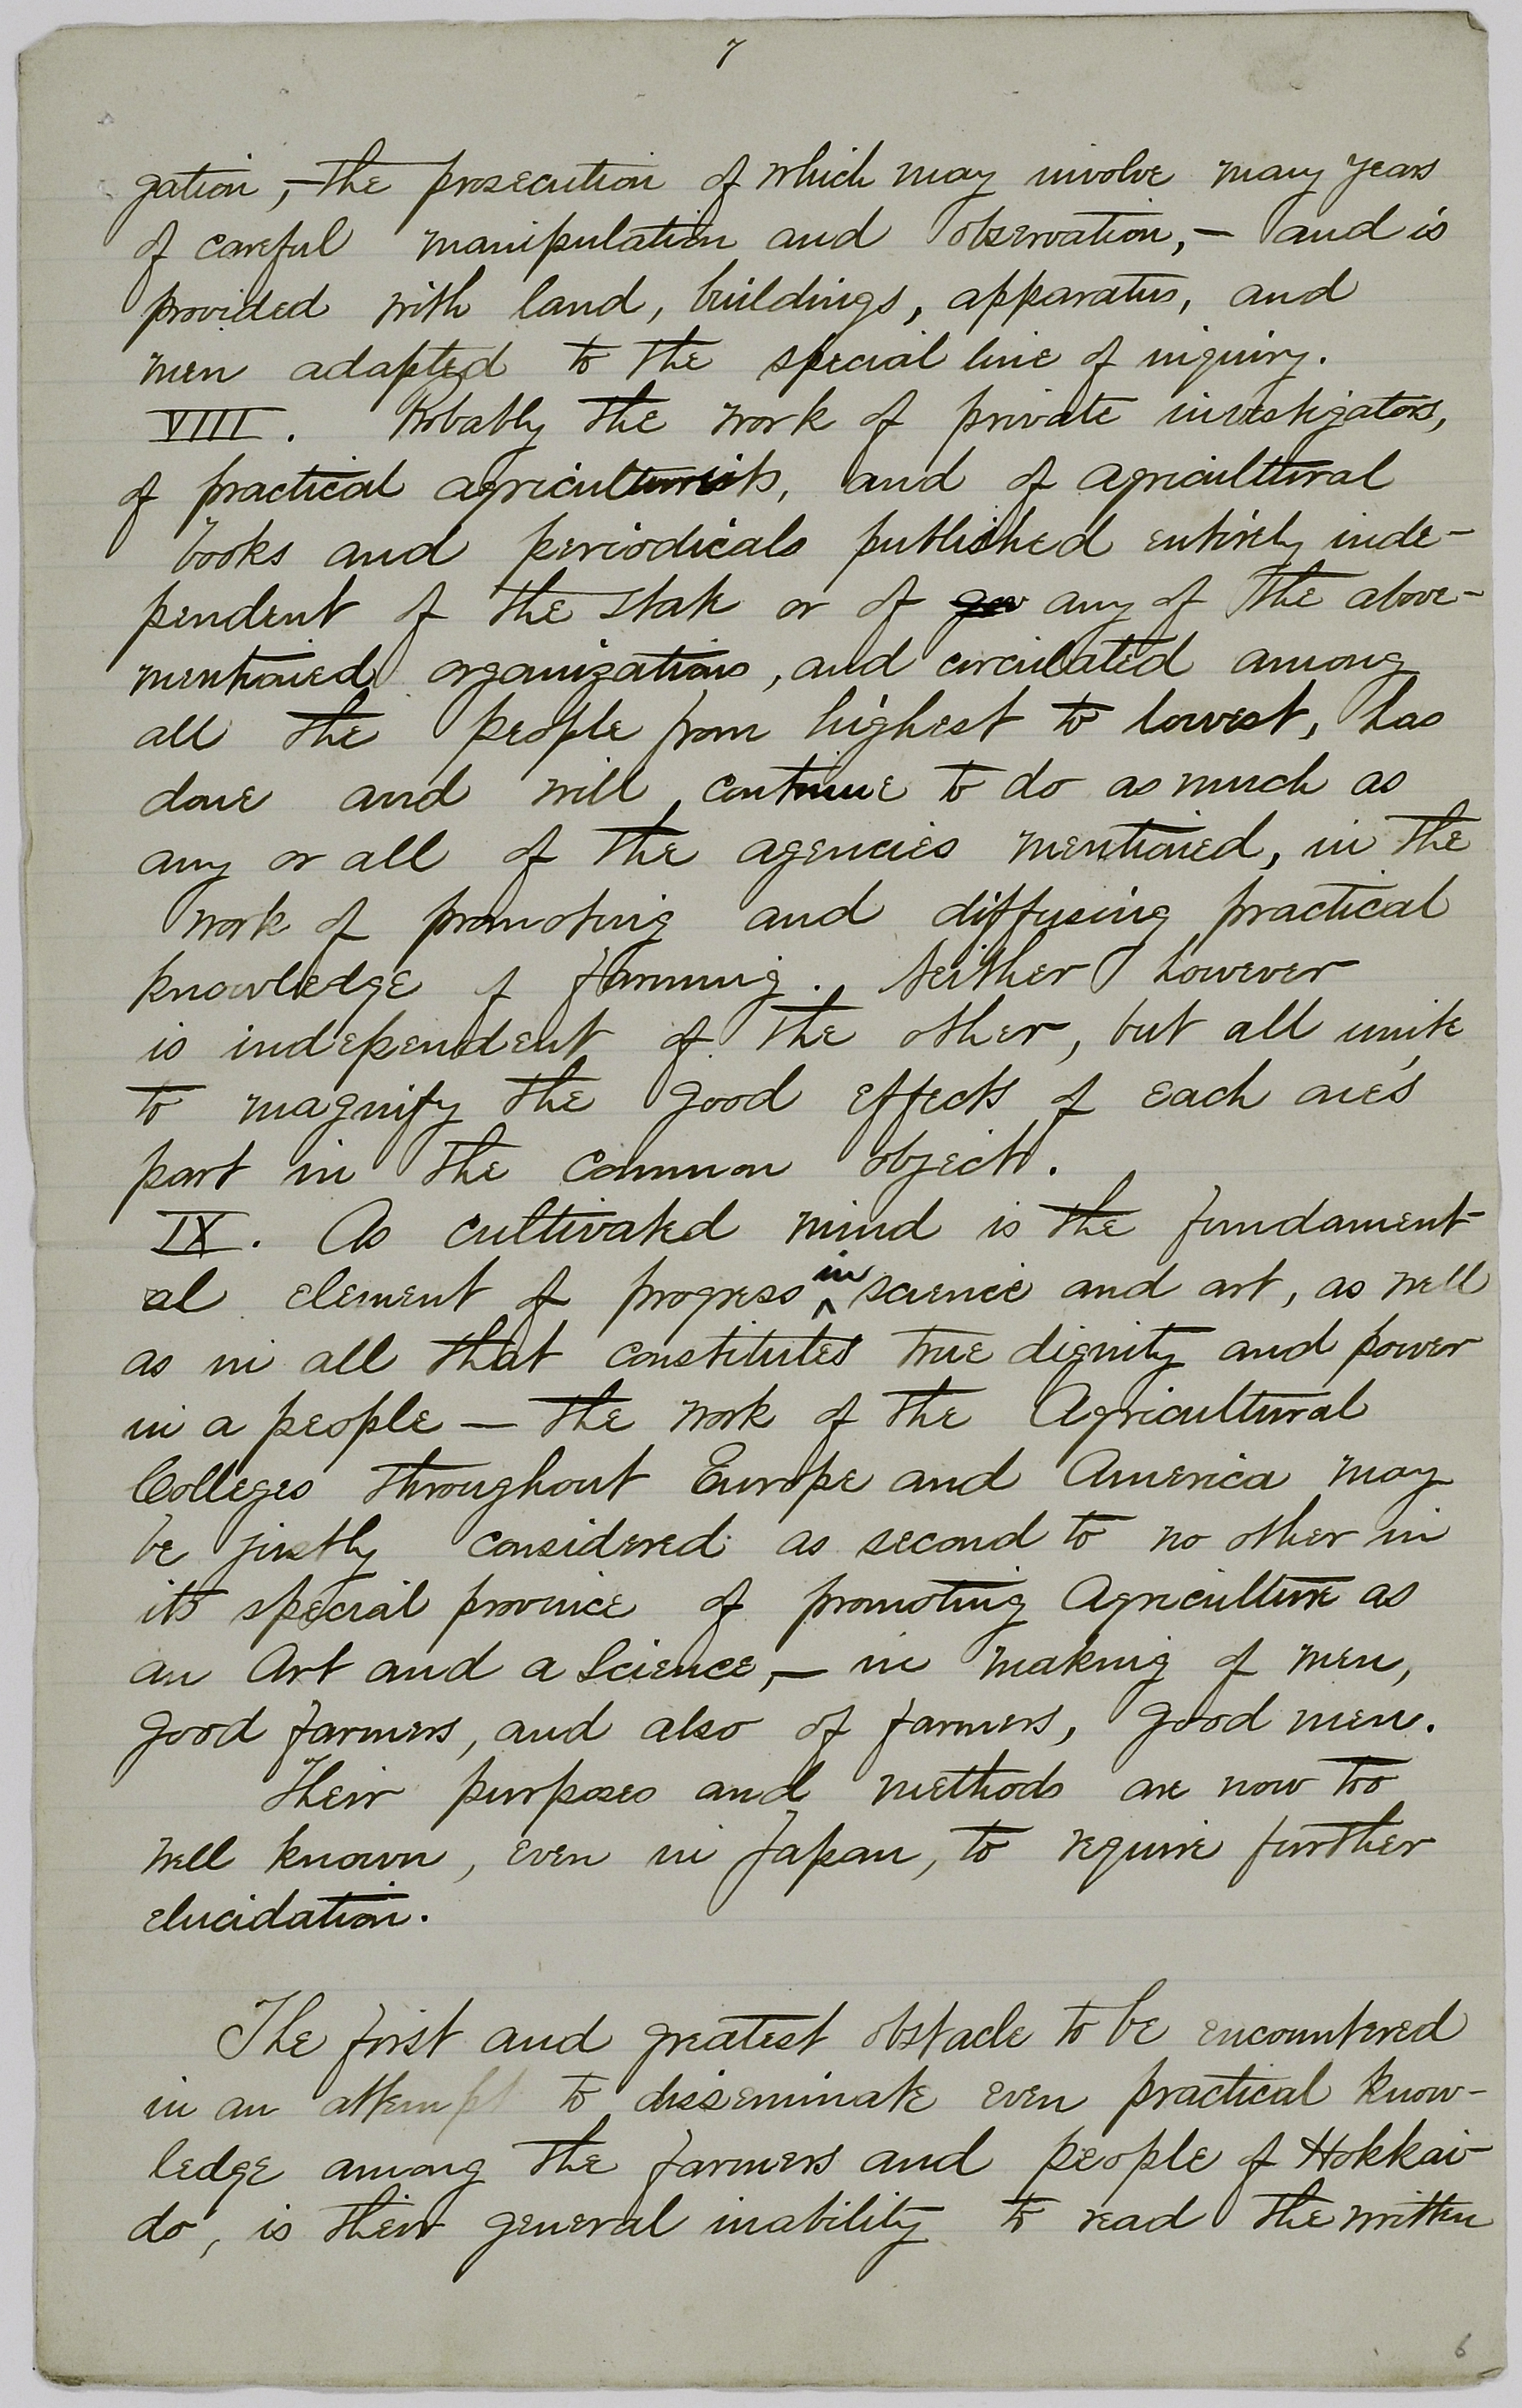 7
gation,—the prosecution of which may involve many years
of careful manipulation and observation,— and is
provided with land, buildings, apparatus, and
men adapted to the special line of inquiry.
VIII. Probably the work of private investigators,
of practical agriculturists, and of agricultural
books and periodicals published entirely inde-
pendent of the State or of gov any of the above-
mentioned organizations, and circulated among
all the people from highest to lowest, has
done and will continue to do as much as
any or all of the agencies mentioned, in the
work of promoting and diffusing practical
knowledge of farming. Neither however
is independent of the other, but all unite
to magnify the good effects of each one's
part in the common object.
IX. As cultivated mind is the fundament-
al element of progress in science and art, as well
as in all that constitutes true dignity and power
in a people — the work of the Agricultural
Colleges throughout Europe and America may
be justly considered as second to no other in
its special province of promoting Agriculture as
an Art and a Science,— in making of men,
good farmers, and also of farmers, good men.
Their purposes and methods are now too
well known, even in Japan, to require further
elucidation.
The first and greatest obstacle to be encountered
in an attempt to disseminate even practical know-
ledge among the farmers and people of Hokkai-
do, is their general inability to read the written
6